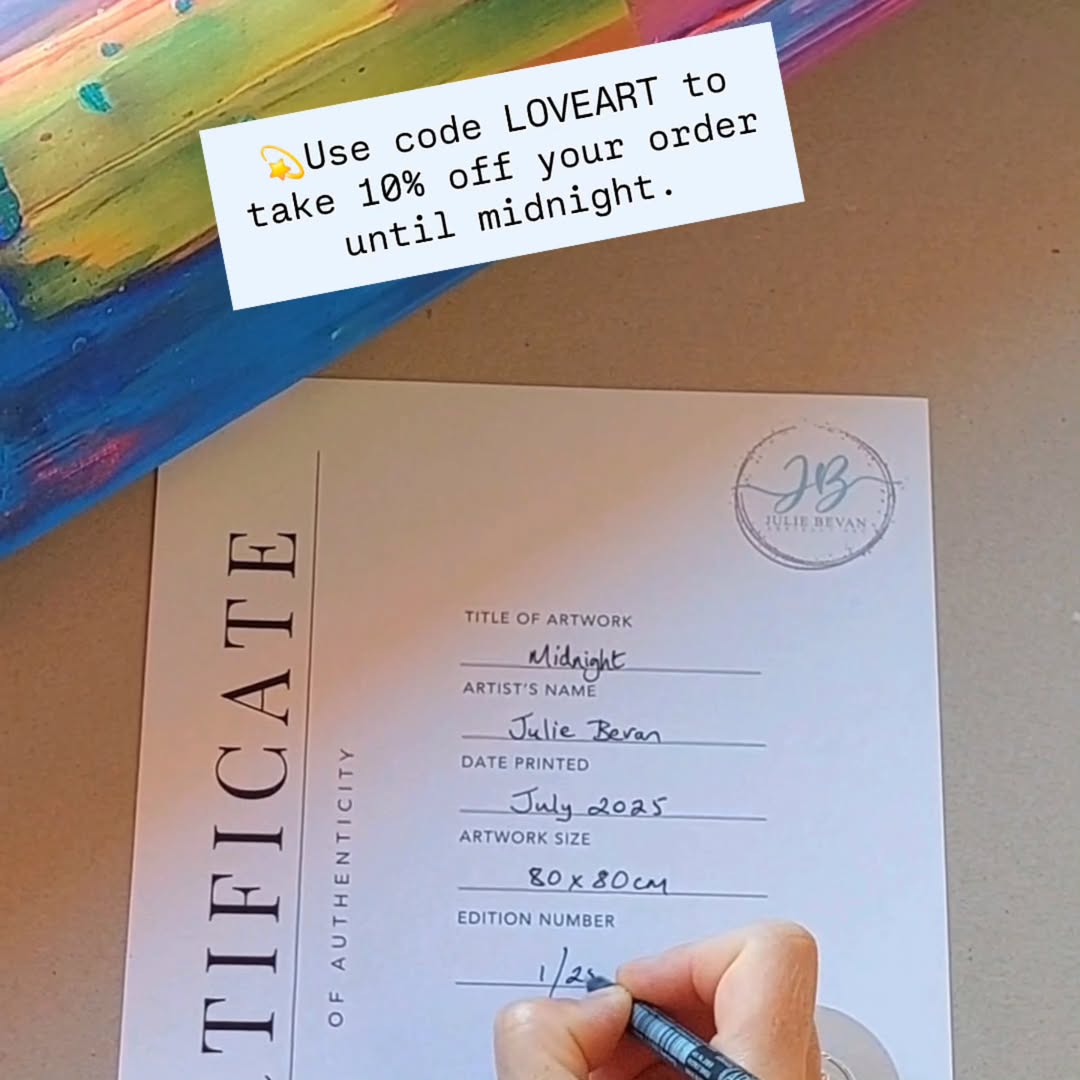 💫Use code LOVEART to
take 10% off your order
until midnight.
JB
JULIE BEVAN
TIFICATE
OF AUTHENTICITY
TITLE OF ARTWORK
Midnight
ARTIST'S NAME
Julie Bevan
DATE PRINTED
July 2025
ARTWORK SIZE
80 x 80cm
EDITION NUMBER
1/25